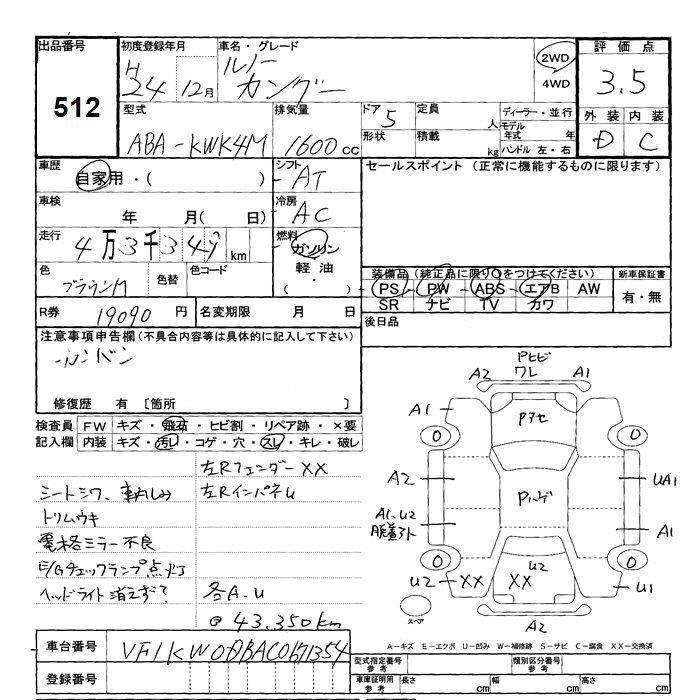 出品番号
512
初度登録年月
H
24 12月
車名・グレード
ルノー
カングー
2WD
4WD
評価点
3.5
外装 内装
D C
型式
ABA-KWK4M
排気量
1600cc
ドア 5
形状
定員 人
積載 kg
ディーラー・並行
モデル
年式 年
ハンドル 左・右
車歴
自家用・( )
シフト
AT
セールスポイント (正常に機能するものに限ります)
車検
年 月( 日)
冷房
AC
走行
4万3千349km
燃料
ガソリン
軽油・
( )
色
ブラウンM
色替
色コード
装備品(純正品に限り○をつけてください)
PS PW ABS エアB AW
SR ナビ TV カワ
新車保証書
有・無
R券 19090円
名変期限 月 日
後日品
注意事項申告欄(不具合内容等は具体的に記入して下さい)
修復歴 有 〔箇所 〕
検査員
記入欄
FW キズ・飛石・ヒビ割・リペア跡・×要
内装 キズ・汚れ・コゲ・穴・スレ・キレ・破レ
左Rフェンダー XX
シートシワ、車内しみ
左Rインパネ U
トリムウキ
電格ミラー不良
E/Gチェックランプ点灯
ヘッドライト消えずて?
各A.U
@ 43.350km
Pヒビ
ワレ
A2 A1
A1
Pアセ
0 0
A2
Pハゲ
UA1
A1.U2
A1
0 0
U2 XX
XX U2
U1
スペア
A2
A-キズ E-エクボ U-凹み W-補修跡 S-サビ C-腐食 XX-交換済
車台番号
VF1KW0BBAC0671354
登録番号
型式指定番号
参考
類別区分番号
参考
車庫証明用
参考
長さ cm
幅 cm
高さ cm